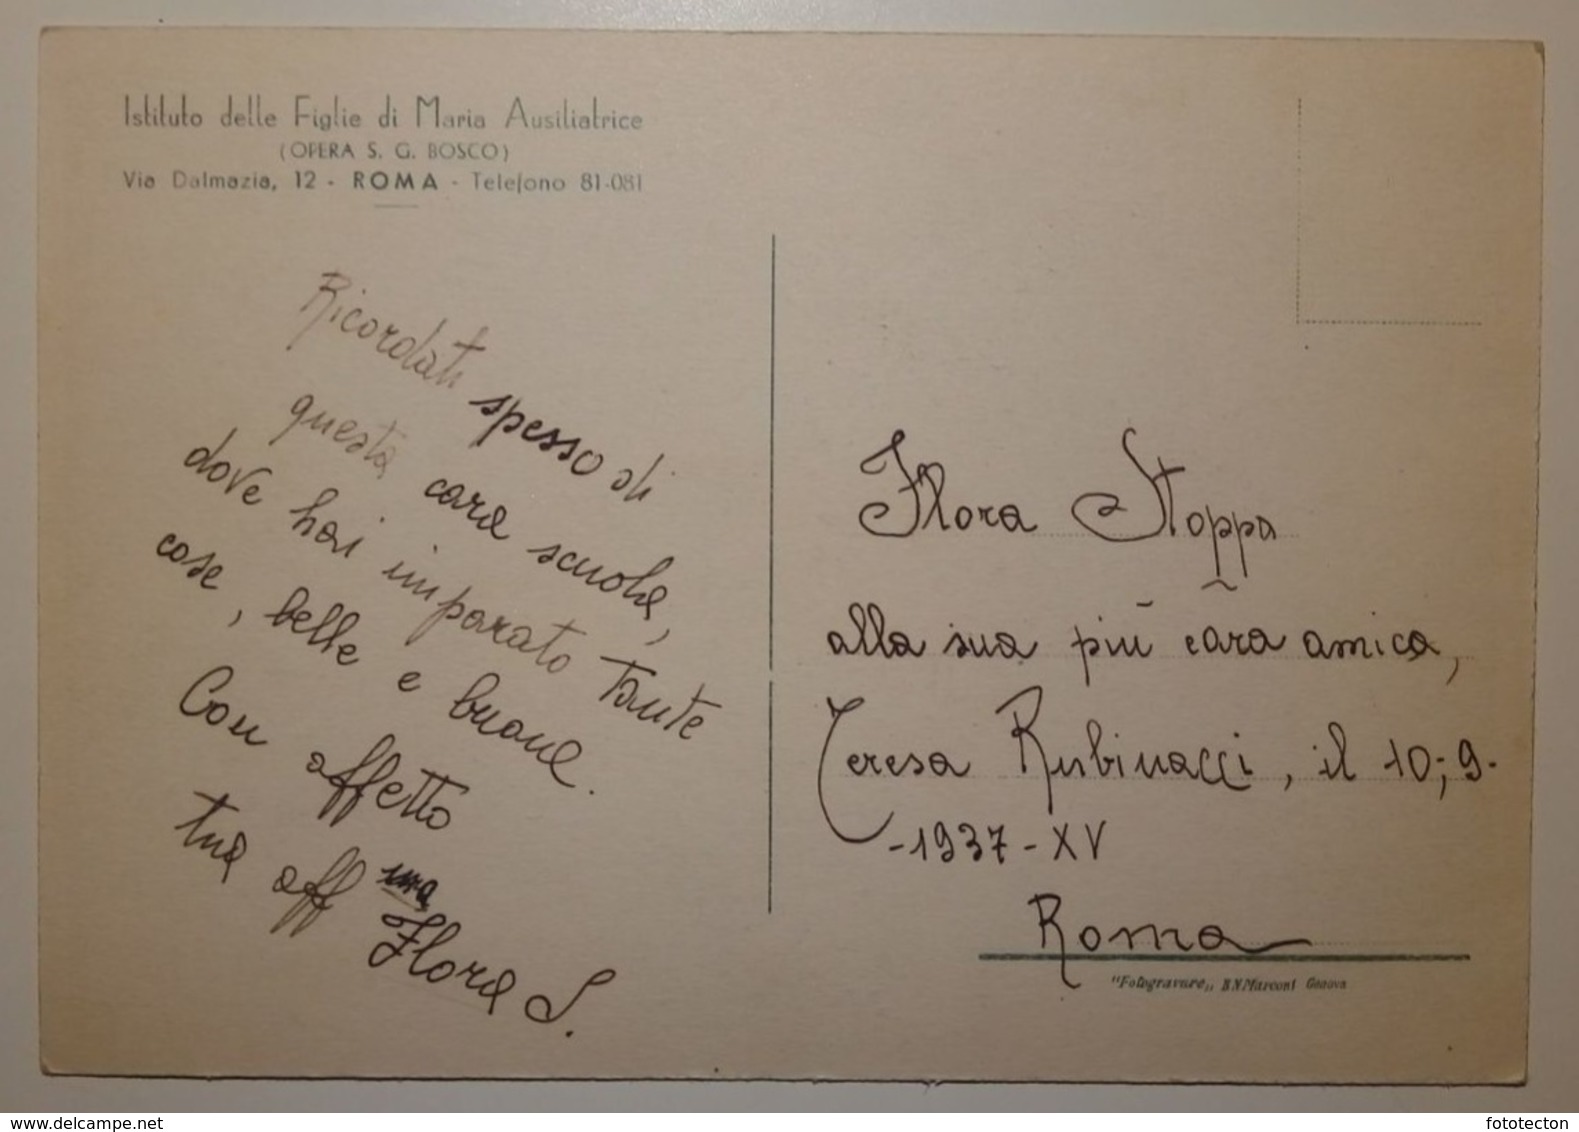 Istituto delle Figlie di Maria Ausiliatrice
(OPERA S. G. BOSCO)
Via Dalmazia, 12 - ROMA - Telefono 81-081
Ricordati spesso di
questa cara scuola,
dove hai imparato tante
cose, belle e buone.
Con affetto
tua aff ma
Flora S.
Flora Stoppa
alla sua più cara amica,
Teresa Rubinacci, il 10-9-
-1937-XV
Roma
"Fotogravure„ B.N.Marconi Genova
www.delcampe.net
fototecton